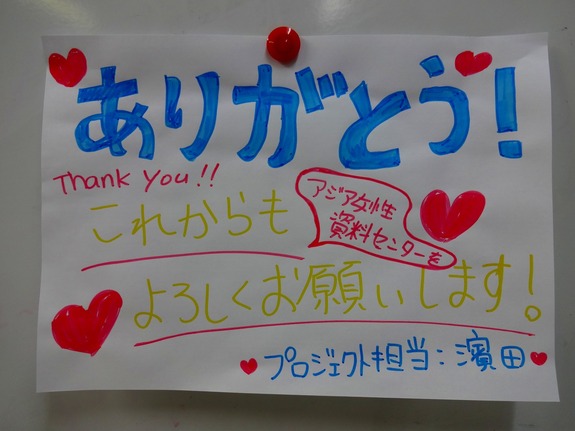 ありがとう!
Thank you!!
これからも
アジア女性
資料センターを
よろしくお願いします!
プロジェクト担当:濱田